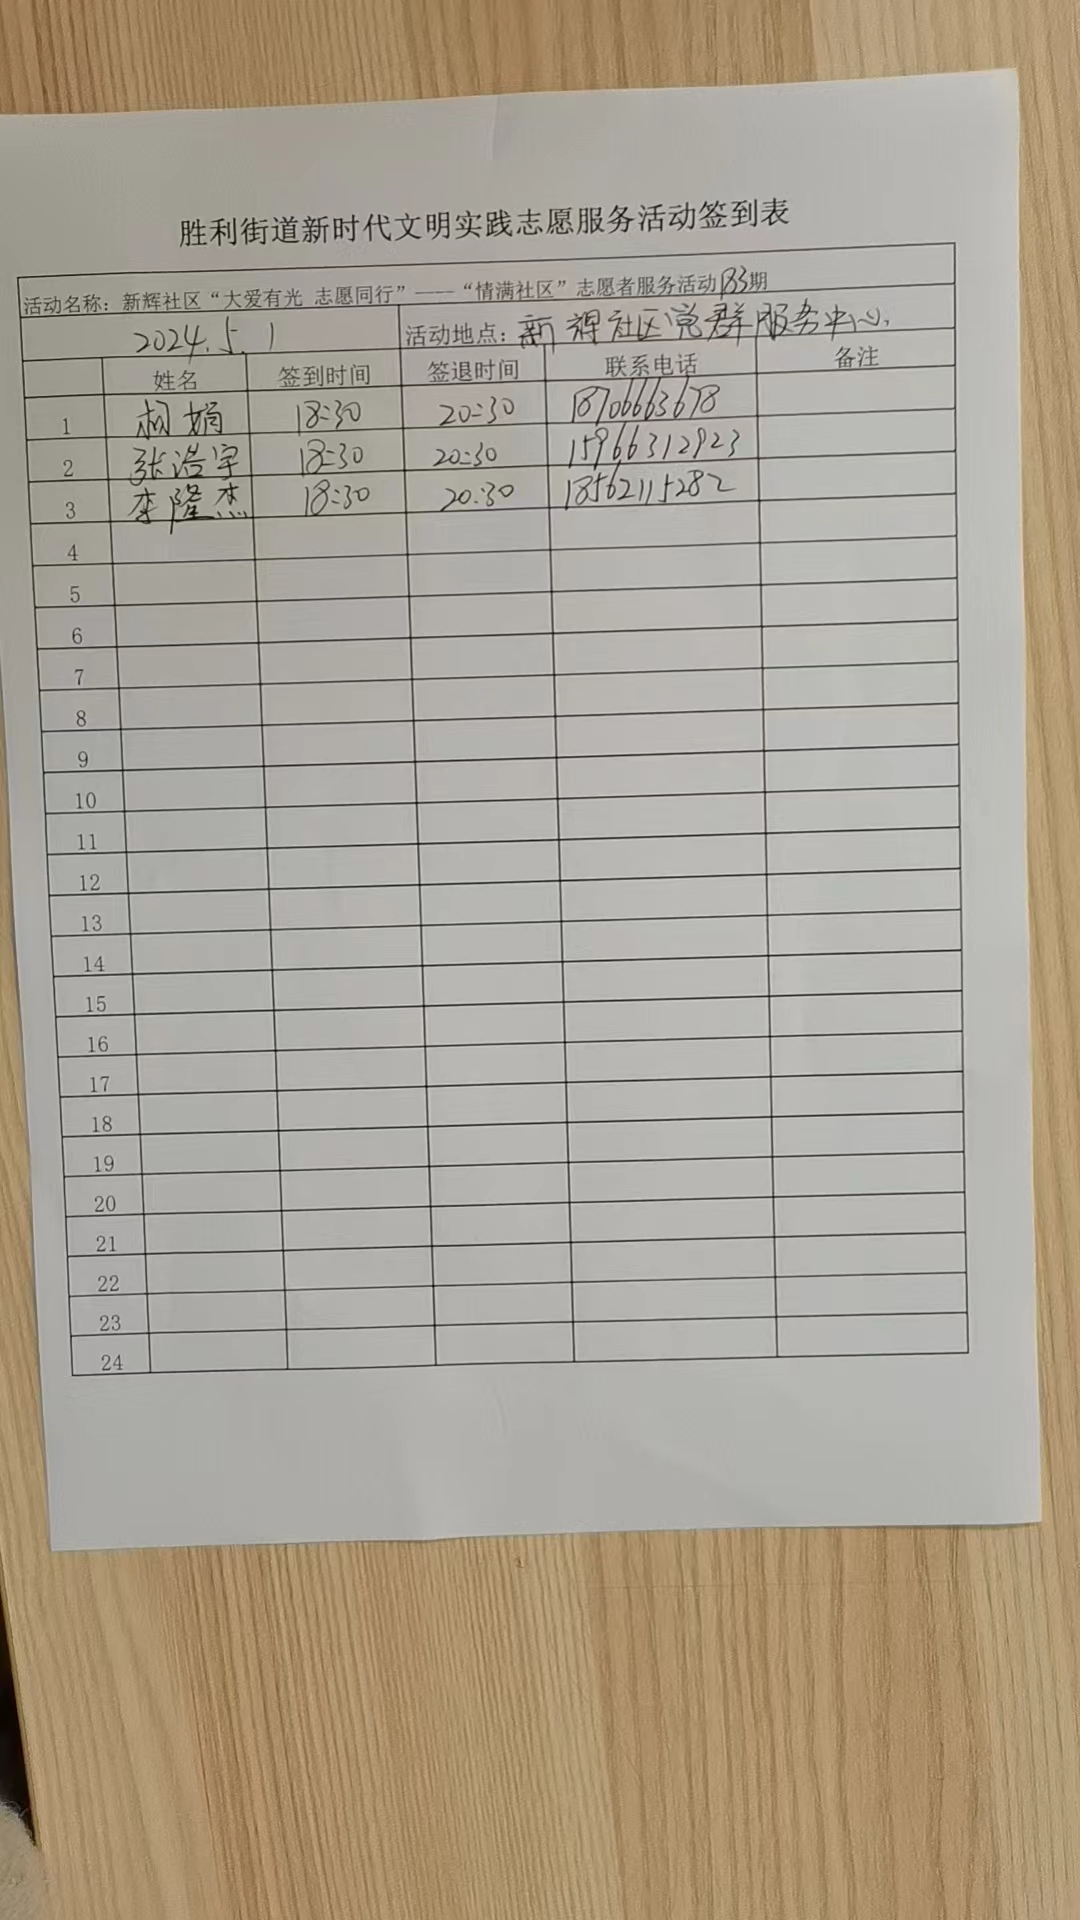 胜利街道新时代文明实践志愿服务活动签到表
活动名称：新辉社区“大爱有光 志愿同行”——“情满社区”志愿者服务活动183期
2024.5.1 活动地点：新辉社区党群服务中心.
姓名 签到时间 签退时间 联系电话 备注
1 娟 18:30 20:30 18706663678
2 张浩宇 18:30 20:30 15966312923
3 李隆杰 18:30 20:30 18562115282
4
5
6
7
8
9
10
11
12
13
14
15
16
17
18
19
20
21
22
23
24